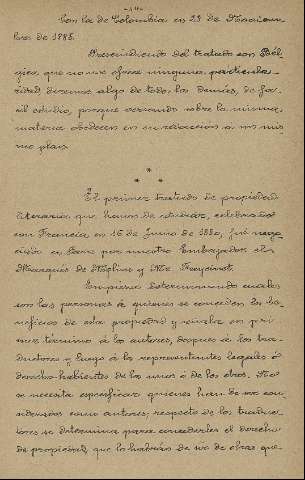 Con la de Colombia en 23 de Diciem-
bre de 1885.
Prescindiendo del tratado con Bél-
gica, que no nos ofrece ninguna particula-
ridad diremos algo de todos los demás, de fá-
cil estudio, porque versando sobre la misma
materia obedecen en su redacción a un mis-
mo plan.
* * *
El primer tratado de propiedad
literaria que hemos de estudiar, celebrado
con Francia en 16 de Junio de 1880, fué nego-
ciado en París por nuestro Embajador el
Marqués de Molins y Mr. Freycinet.
Empieza determinando cuales
son las personas á quienes se conceden los be-
neficios de esta propiedad y señala en pri-
mer término á los autores, después á los tra-
ductores y luego á los representantes legales ó
derecho-habientes de los unos ó de los otros. No
se necesita especificar quienes han de ser con-
siderados como autores; respecto de los traduc-
tores se determina para concederles el derecho
de propiedad, que lo habrán de ser de obras que